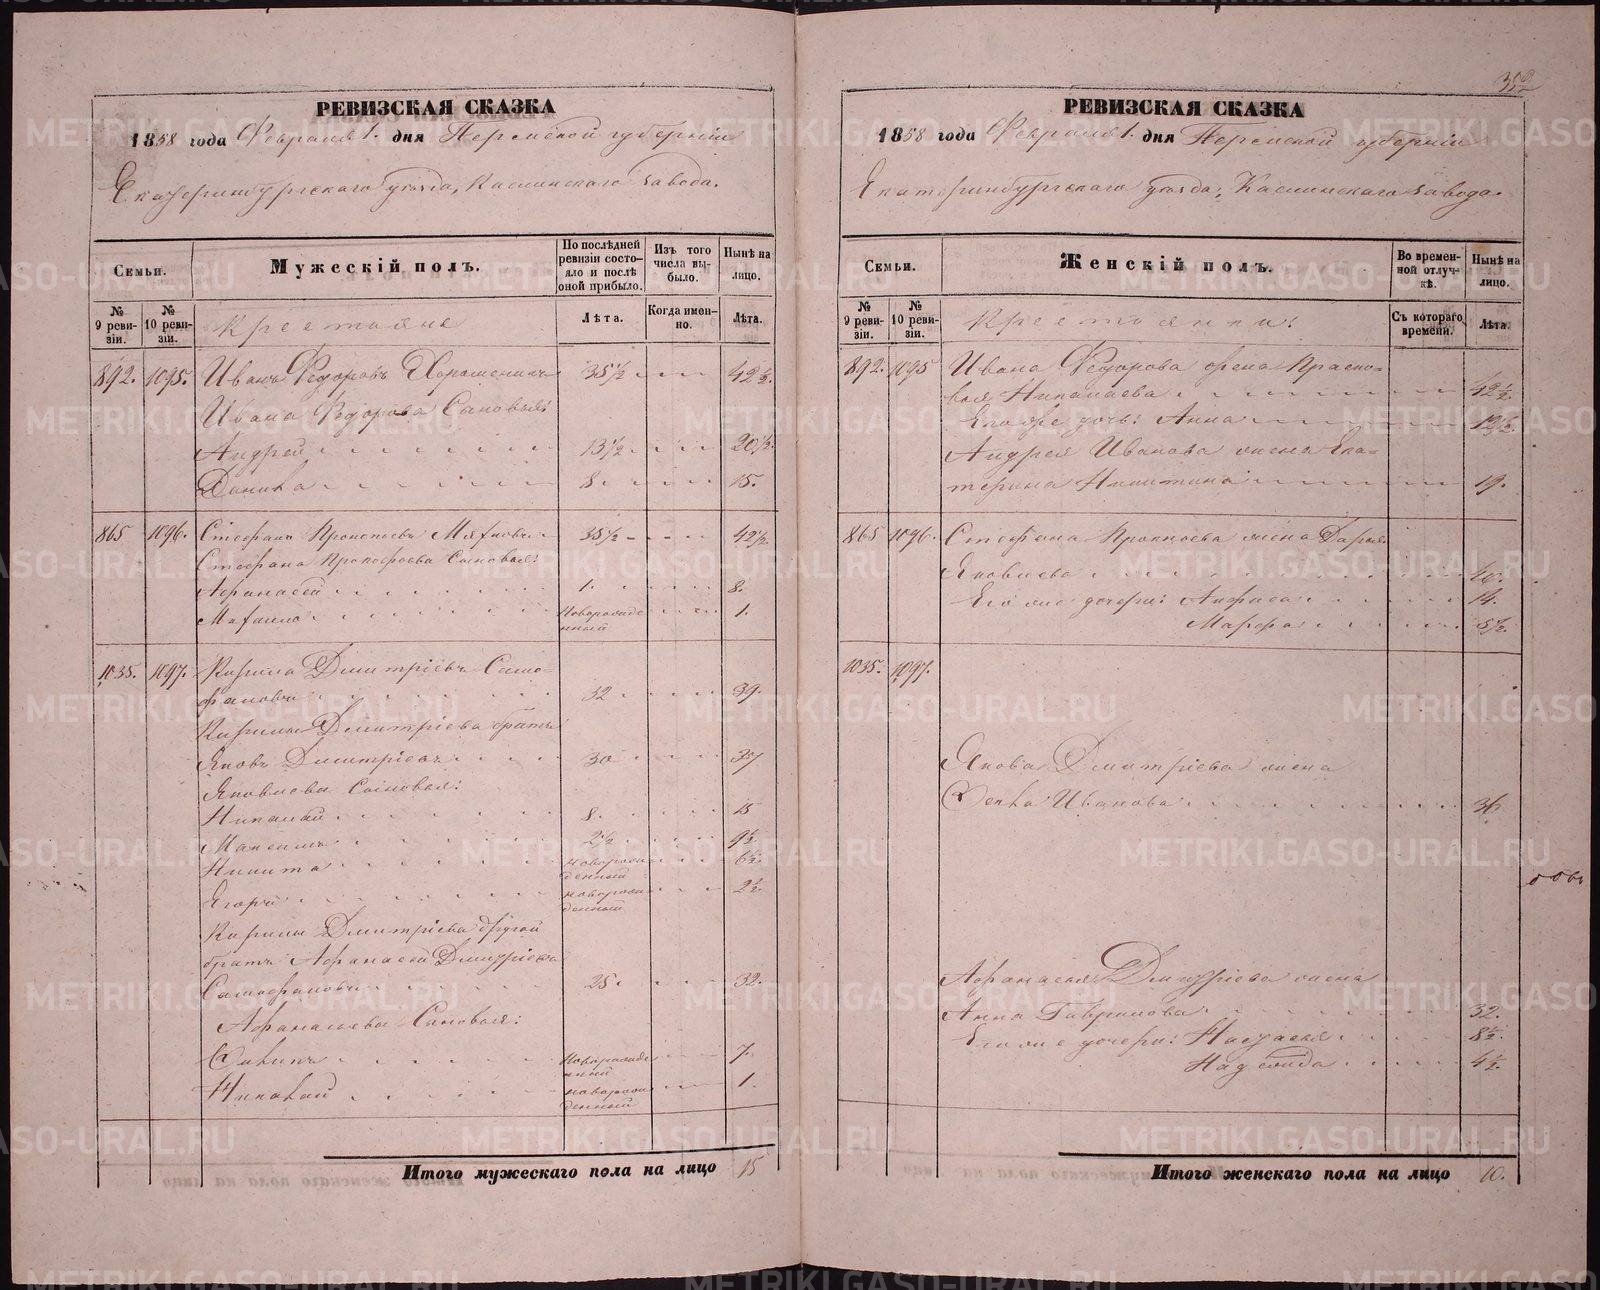 РЕВИЗСКАЯ СКАЗКА
1858 года Февраля 1. дня Пермской губернiи
Екатеринбургскаго уѣзда, Каслинскаго завода.
Семьи.
Мужескiй полъ.
По послѣдней ревизiи состояло и послѣ оной прибыло.
Изъ того числа выбыло.
Нынѣ на лицо.
№ 9 ревизiи.
№ 10 ревизiи.
Крестьяне
Лѣта.
Когда именно.
Лѣта.
892. 1095. Иванъ Федоровъ 35½ 42½.
Ивана Федорова Сыновья:
Андрей 13½ 20½.
Данила 8. 15.
865 1096. Стефанъ Прокопьевъ 35½ 42½.
Стефана Прокофьева Сыновья:
Афанасей 1. 8.
Михаило новорожденный 1.
1035. 1097. Кирила Дмитрiевъ Само-
фаловъ 32 39.
Кирилы Дмитрiева братъ
Яковъ Дмитрiевъ 30 37
Яковлевы Сыновья:
Николай 8. 15
Максимъ 2½ 9½
Никита новорожденный 6½.
Егоръ новорожденный 2½
Кирилы Дмитрiева другой
братъ Афанасей Дмитрiевъ
Самофаловъ 25. 32.
Афанасьевы Сыновья:
новорожденный 7.
Николай новорожденный 1.
Итого мужескаго пола на лицо 15
352
РЕВИЗСКАЯ СКАЗКА
1858 года Февраля 1. дня Пермской губернiи
Екатеринбургскаго уѣзда, Каслинскаго завода.
Семьи.
Женскiй полъ.
Во временной отлучкѣ.
Нынѣ на лицо.
№ 9 ревизiи.
№ 10 ревизiи.
Крестьянки:
Съ котораго времени.
Лѣта.
892. 1095 Ивана Федорова жена Праско-
вья Николаева 42½.
Его же дочь: Анна 12½.
Андрея Иванова жена Ека-
терина Никитина 19.
865 1096. Стефана Прокпьева жена Дарья
Яковлева 40.
Его же дочери: Анфиса 14.
Марфа 5½.
1035. 1097.
Якова Дмитрiева жена
Иванова 36
Афанасья Дмитрiева жена
Анна Гаврилова 32.
Его же дочери: Настасья 8½.
Надежда 4½.
Итого женскаго пола на лицо 10.
METRIKI.GASO-URAL.RU